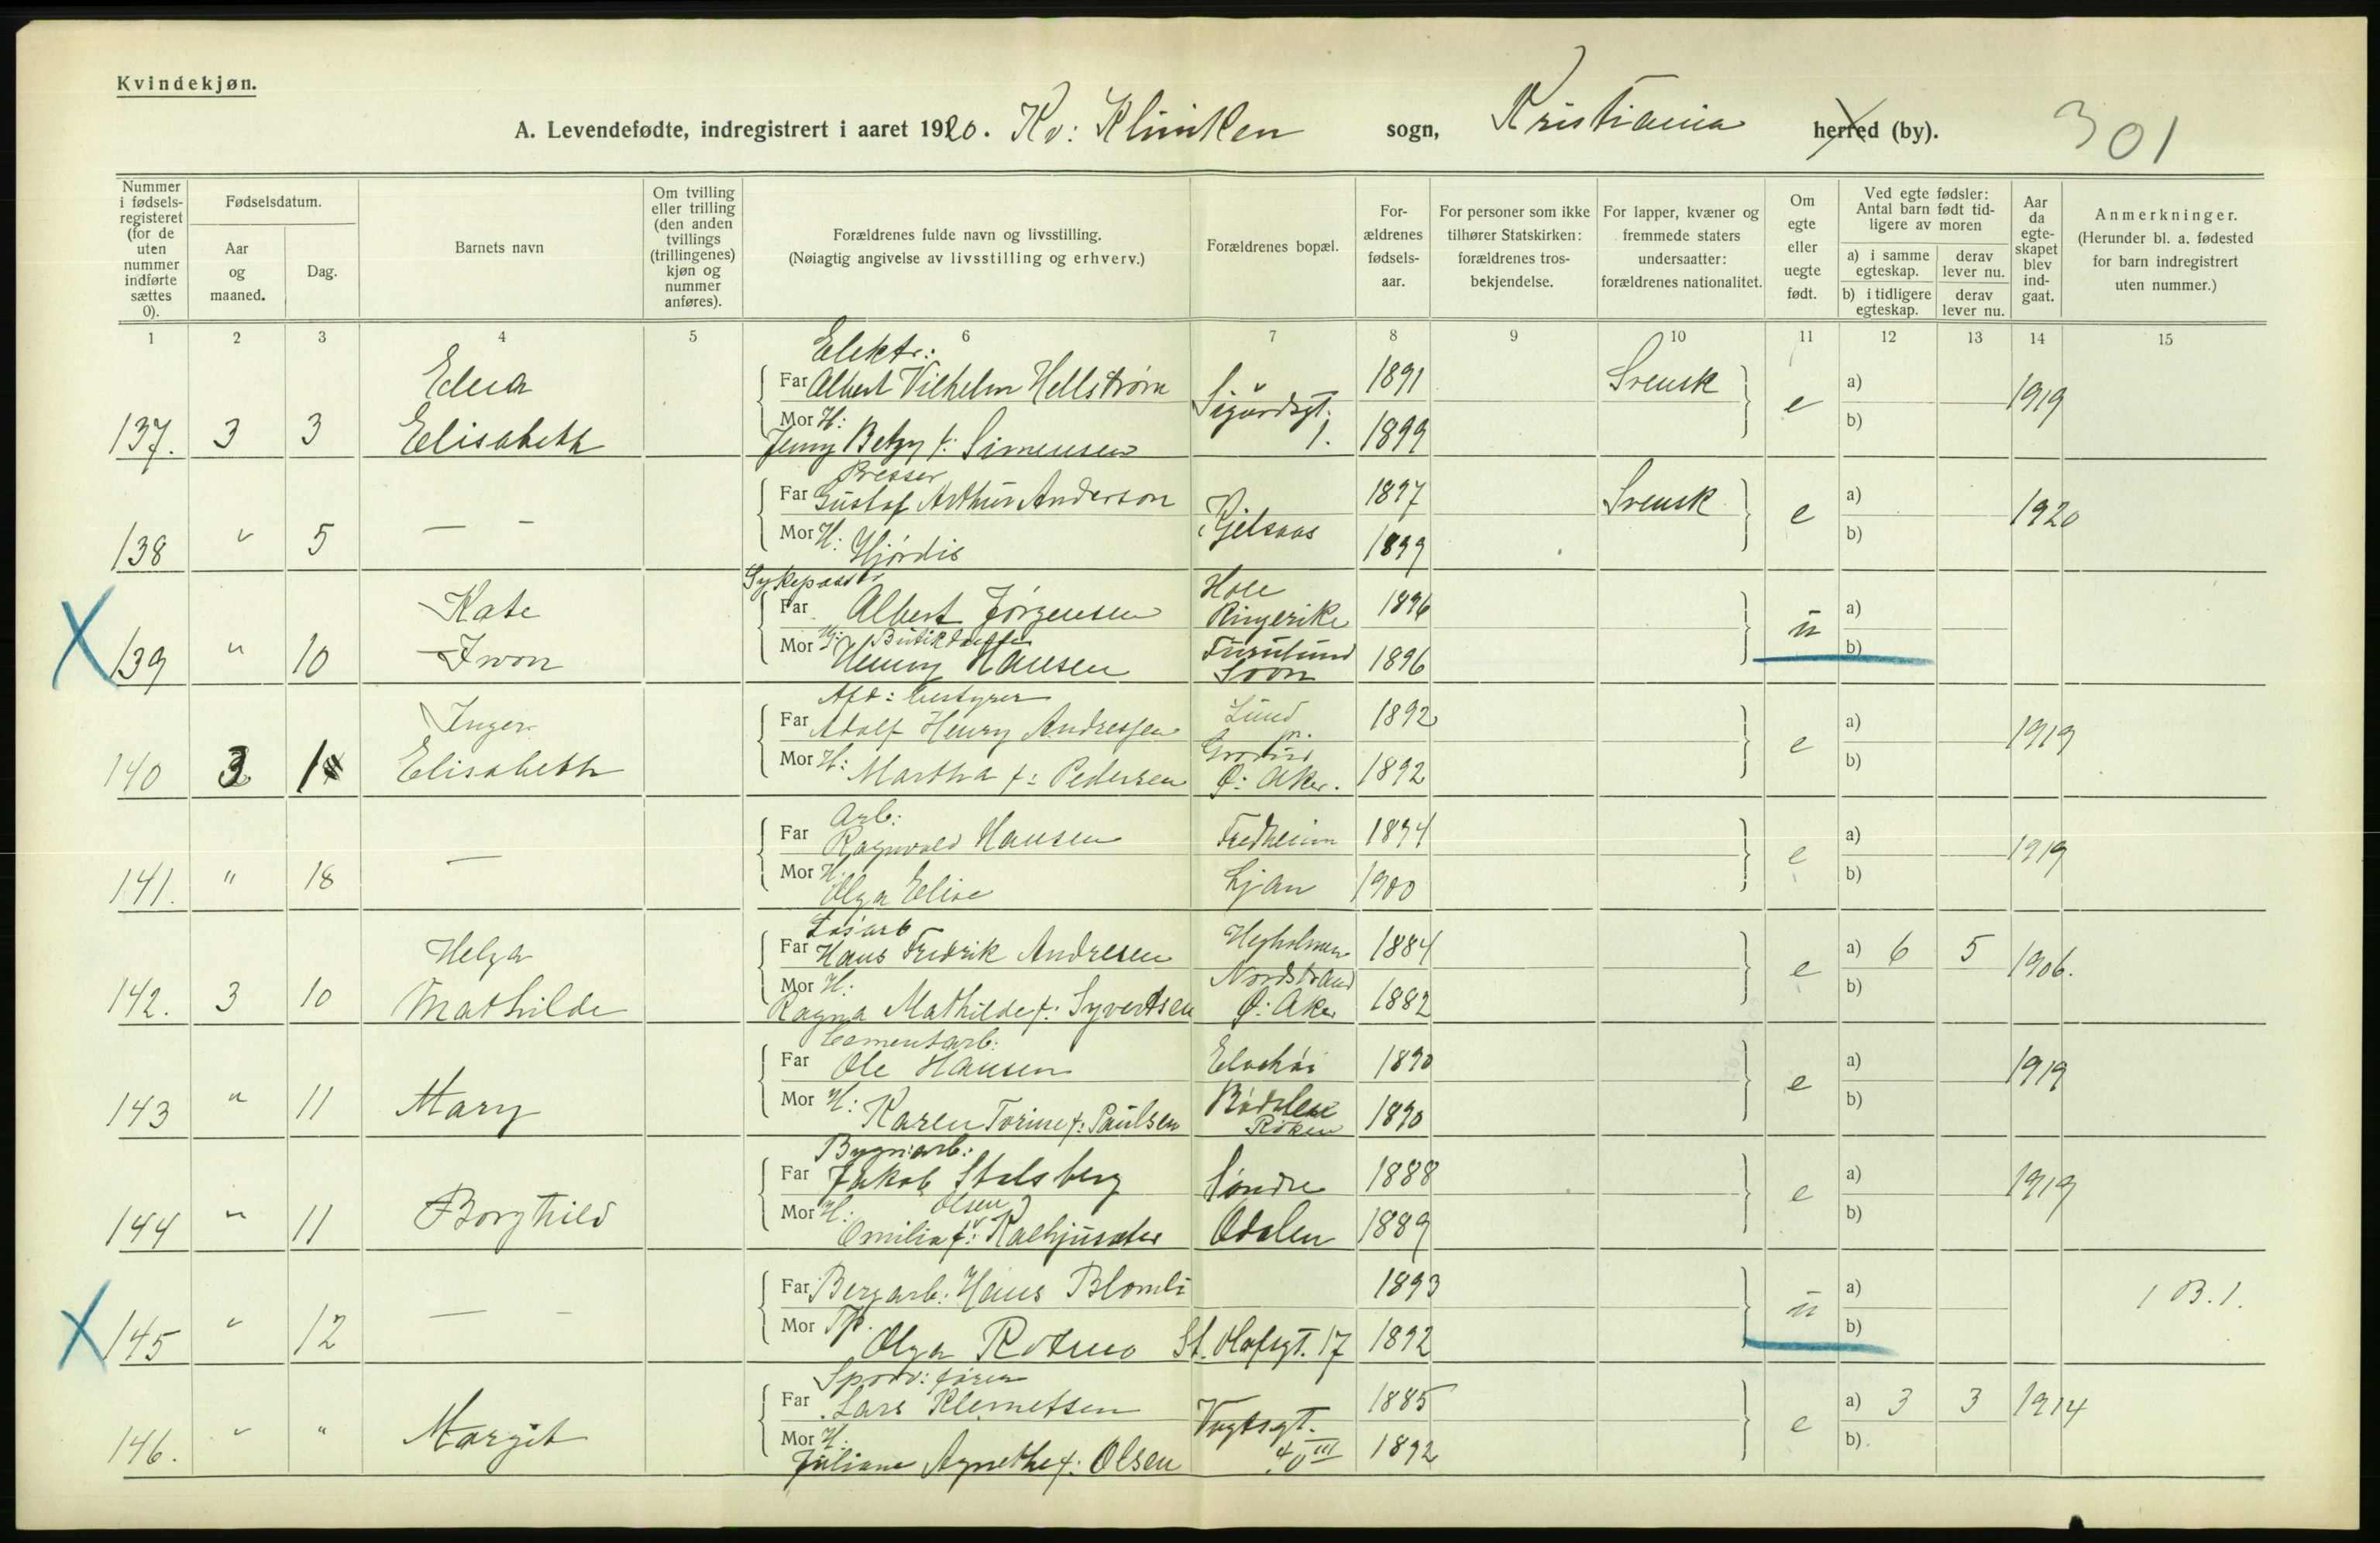 Kvindekjøn.
A. Levendefødte, indregistrert i aaret 1920. Kv: Kliniken sogn, Kristiania herred (by). 301
Nummer i fødsels-registeret (for de uten nummer indførte sættes 0).
Fødselsdatum.
Aar og maaned.
Dag.
Barnets navn
Om tvilling eller trilling (den anden tvillings (trillingenes) kjøn og nummer anføres).
Forældrenes fulde navn og livsstilling.
(Nøiagtig angivelse av livsstilling og erhverv.)
Forældrenes bopæl.
For-ældrenes fødsels-aar.
For personer som ikke tilhører Statskirken: forældrenes tros-bekjendelse.
For lapper, kvæner og fremmede staters undersaatter: forældrenes nationalitet.
Om egte eller uegte født.
Ved egte fødsler: Antal barn født tid-ligere av moren
a) i samme egteskap.
derav lever nu.
b) i tidligere egteskap.
derav lever nu.
Aar da egte-skapet blev ind-gaat.
Anmerkninger.
(Herunder bl. a. fødested for barn indregistrert uten nummer.)
1 2 3 4 5 6 7 8 9 10 11 12 13 14 15
Elektr.:
Far Albert Vilhelm Hellstrøm 1891 Svensk a)
137. 3 3 Edna Elisabeth Sigurdsgt. 1. e 1919
Mor H: Jenny Betzy f: Simensen 1899 b)
Presser
Far Gustaf Arthur Anderson 1897 Svensk a)
138 " 5 — - Kjelsaas e 1920
Mor H: Hjørdis 1899 b)
Sykepasser
Far Albert Jørgensen Hole Ringerike 1896 a)
X 139 " 10 Kate Iwon u
Butikdame
Mor Henny Hansen Soon 1896 b)
Afd: bestyrer
Far Adolf Henry Andresen Lund pr. 1892 a)
140 3 1 Inger Elisabeth e 1919
Mor H: Martha f: Pedersen Grorud Ø: Aker. 1892 b)
Arb:
Far Ragnvald Hansen Fredheim 1894 a)
141. " 18 — e 1919
Mor H. Olga Elise Ljan 1900 b)
Løsarb
Far Hans Fredrik Andresen 1884 a) 6 5
142. 3 10 Helga Mathilde Nordstrand e 1906.
Mor H: Ragna Mathilde f: Syvertsen Ø: Aker 1882 b)
Cementarb:
Far Ole Hansen 1890 a)
143 " 11 Mary e 1919
Mor H: Karen Torine f: Paulsen Bødalen Røken 1890 b)
Bygn:arb:
Far Jakob Stalsberg Søndre 1888 a)
144 " 11 Borghild e 1919
Olsen
Mor H: Omilia f: Odalen 1889 b)
Far Bergarb: Hans Blomli 1893 a)
X 145 " 12 — - u 1 B. 1.
Mor Tp. Olga Rotmo St. Olafsgt. 17 1892 b)
Sporv: fører
Far Lars Klemetsen 1885 a) 3 3
146. " " Margit Vogtsgt. 40 III e 1914
Mor H. Juliane Agnethe f: Olsen 1892 b)